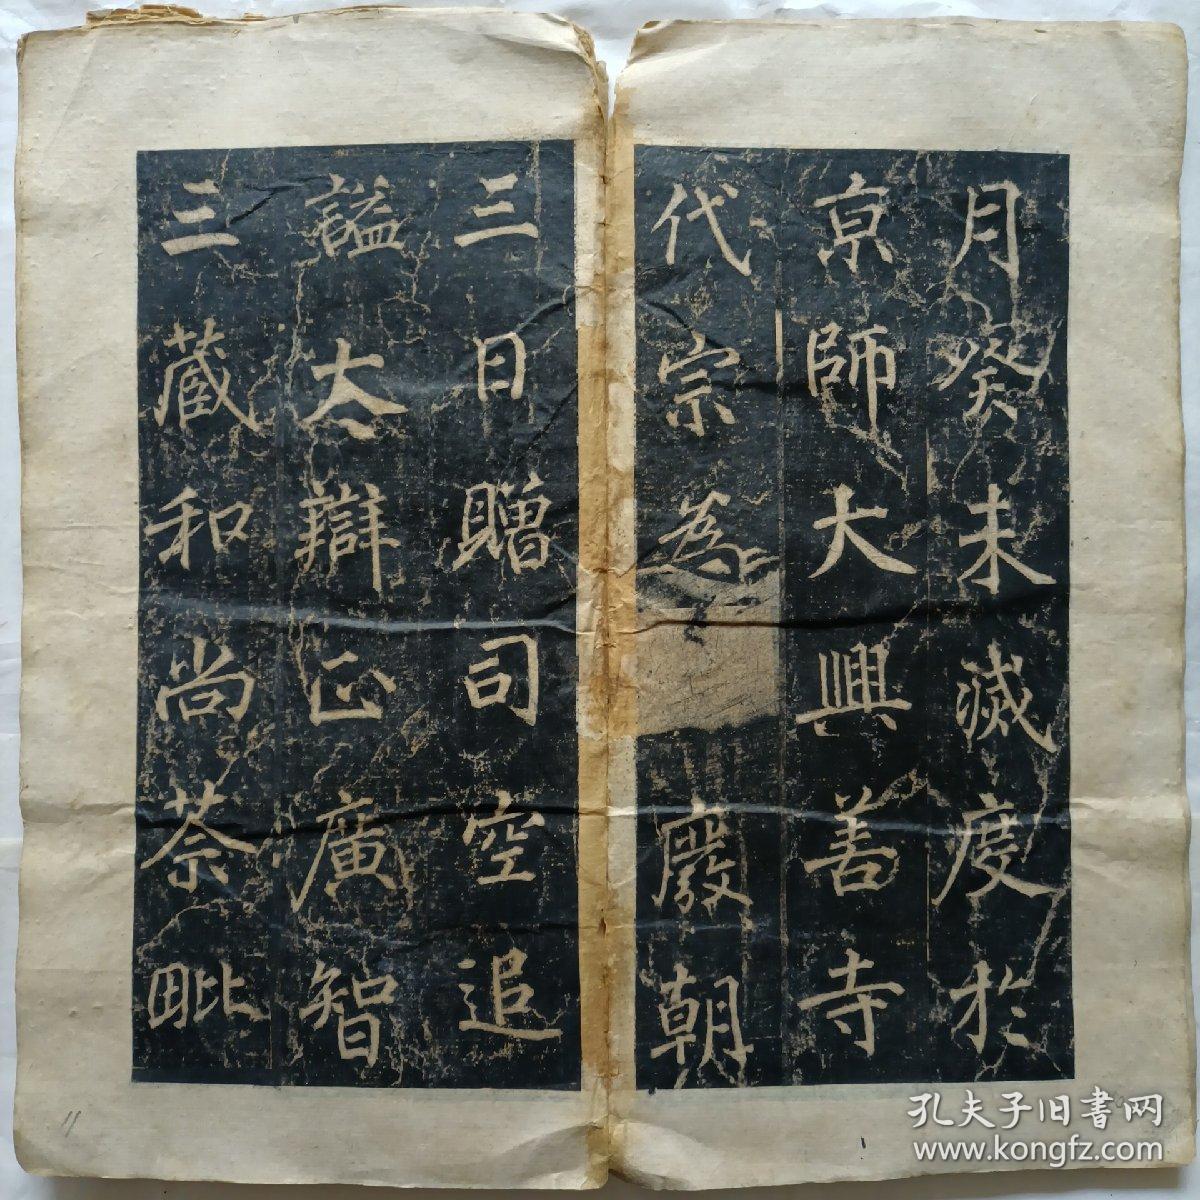 月癸未滅度於
京師大興善寺
代宗為
廢朝
三日贈司空追
諡大辯正廣智
三藏和尚荼毗
11
孔夫子旧書网
www.kongfz.com